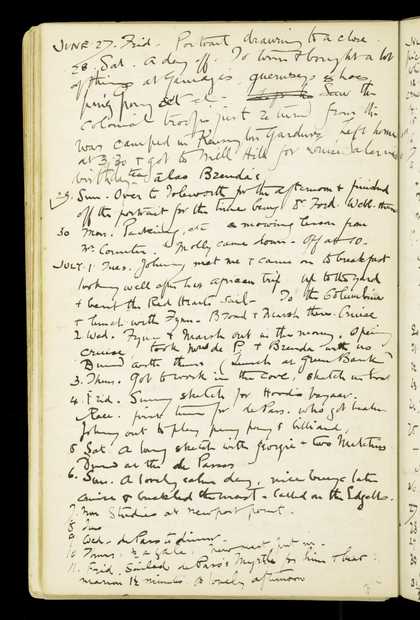 JUNE 27. Frid. Portrait drawing to a close.
28. Sat. A day off. To town & bought a lot
of things at Gamages guernseys shoes,
ping pong set etc. Saw the
Colonial troops just returned from the
was camped in Kensington Gardens left home
at 3/30 & got to Mill Hill for
birthday also Brenda's
29. Sun. Over to Tolworth for the afternoon & finished
off the portrait for the time being St Ford. Well.
30 Mon. Packing etc a mowing lesson from
Mr Counter. Molly came down. Off at 10.
JULY. 1. Tues. Johnny met me & came on to breakfast
looking well after his african trip up to the yard
& bent the Red Hearts Sail. To the Columbine
& lunch with Fynn. Brond & Marsh there. Cruise
2. Wed. Fynn & Marsh out in the morng. Opening
cruise took P. & Brenda with us
Dined with them. (Lunch at Green Bank)
3. Thurs. Got to work in the cove, sketch in
4. Frid. Sunny sketch for Hoods bazaar.
Race. prize time for de Pass. who got
Johnny out to play ping pong & billiard,
5 Sat. A long sketch with Georgie & two
Dined at the de Passes
6. Sun. A lovely calm day, nice breeze later
cruise & buckled the mast. Called on the Edgells.
7. Mon Studies at newport point.
8 Tues
9. Wed. de Pass to dinner.
10 Thurs. ½ a gale. new mast put in.
11. Frid. Sailed de Pass's Myrtle for him & beat
marion 1½ minutes a lovely afternoon